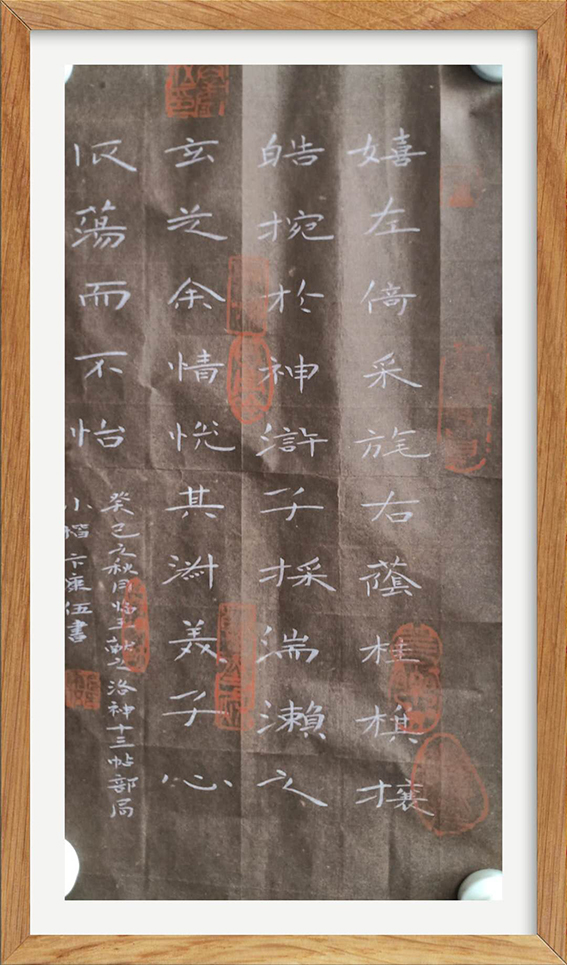 嬉左倚采旄右蔭桂棋攘
皓捥於神滸兮採湍瀨之
玄芝余情悅其淑美兮心
振蕩而不怡
癸巳之秋月临王献之洛神十三帖部局
小楷 卞康伍書